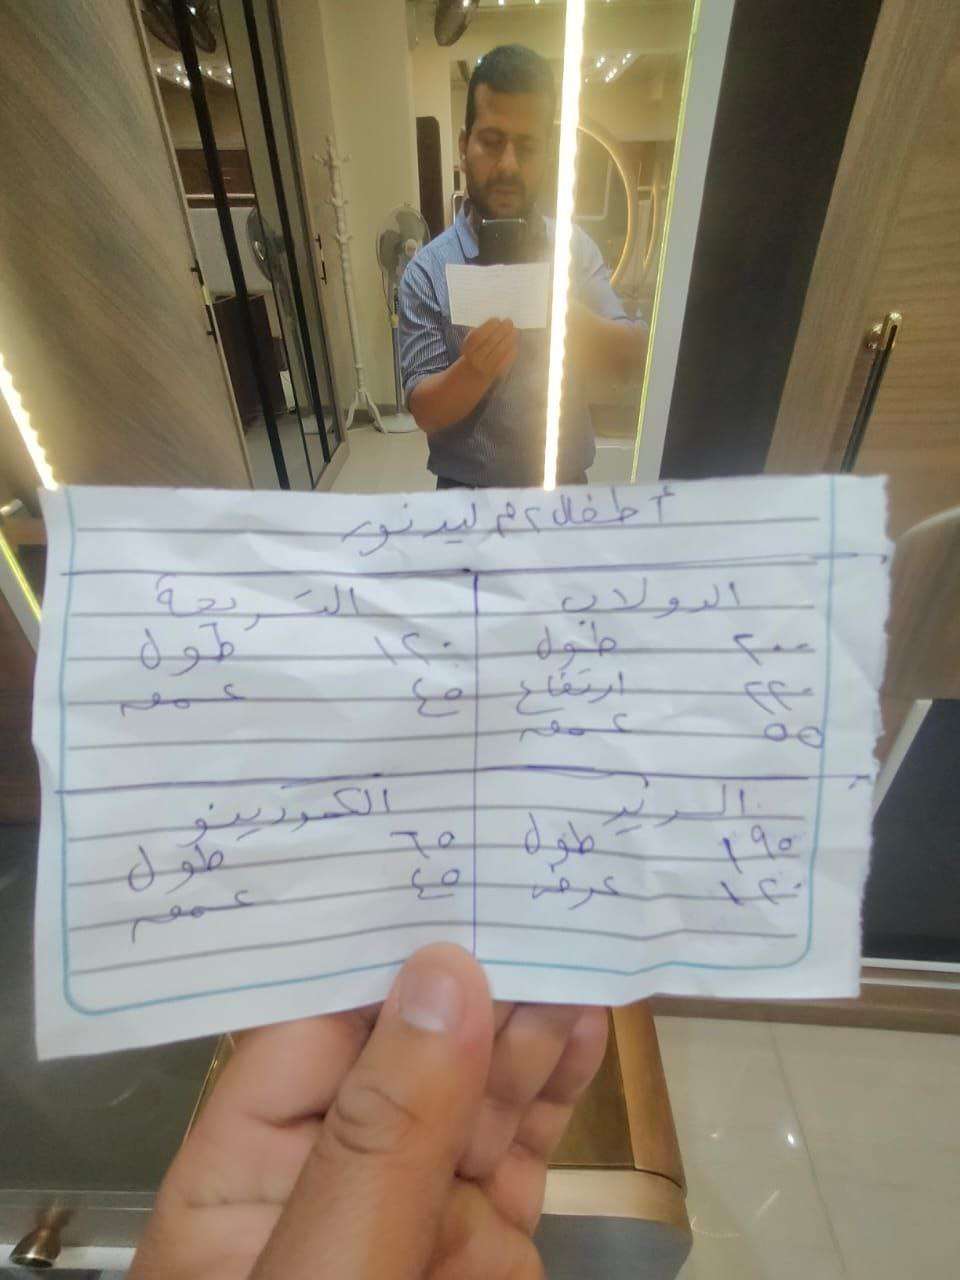 أطفال ٢م ليدنور
الدولاب
٢٠٠ طول
٢٢٠ ارتفاع
٥٥ عمق
التسريحة
١٢٠ طول
٤٥ عمق
السرير
١٩٥ طول
١٢٠ عرض
الكمودينو
٦٥ طول
٤٥ عمق